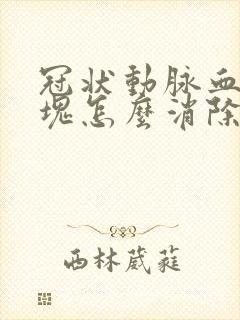 冠状動脉血
塊怎麼消除
西林葳蕤